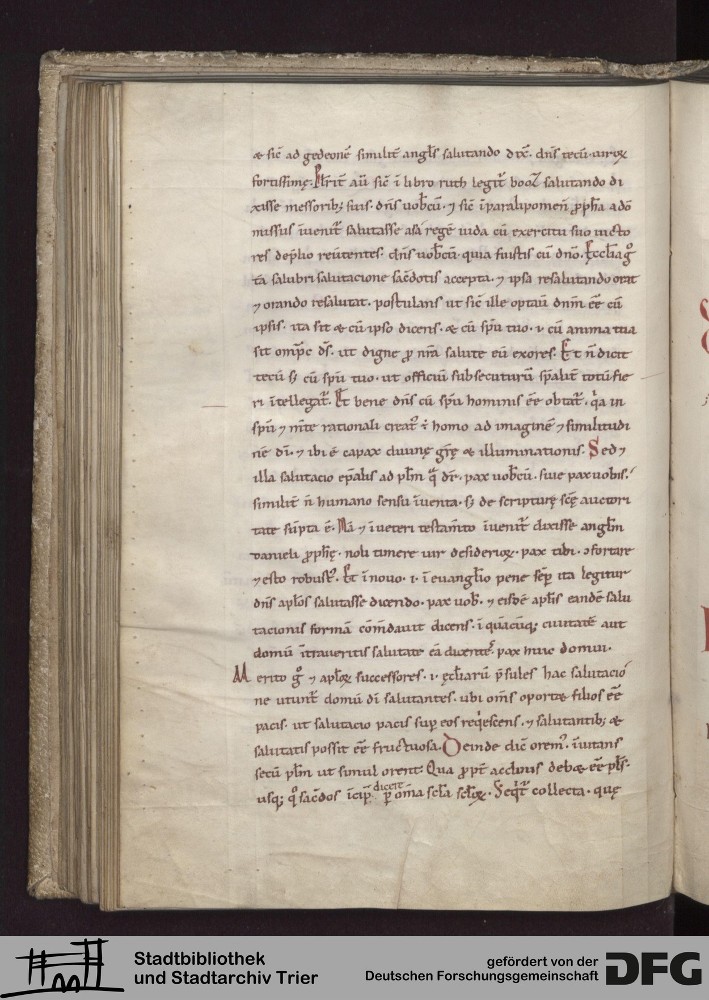 & sic̄ ad gedeonē similit̄ angl̄s salutando dix̄. dn̄s tecū uiroꝝ
fortissimę. Nr̄it aū sic̄ ī libro ruth legit᷑ booz salutando di
xisse messorib; suis. dn̄s uob̄cū. ⁊ sic̄ īparalipomen̄ ꝓph̄a adō
nissus īuenit᷑ salutasse asa regē iuda cū exercitu suo uicto
res dep̄lio reūtentes. dn̄s uob̄cū. quia fuistis cū dn̄o. Eccl̄ia gͦ
tā salubri salutacione sac̄dotis accepta. ⁊ ipsa resalutando orat
⁊ orando resalutat. postulans ut sic̄ ille optau̅ dnm̄ eē cū
ipsis. ita sit & cū ipso dicens. & cū sp̄u tuo. ı cū anima tua
sit omp̄c ds̄. ut digne ꝓ nr̄a salute eū exores. Et n̄ dicit
tecū sꝫ cū sp̄u tuo. ut officiū subsecuturū sp̄alit̄ totū fie
ri ītellegat᷑. Et bene dn̄s cū sp̄u hominis eē obtat᷑. qͣa in
sp̄u ⁊ m̄te rationali creat᷑ ē homo ad imaginē ⁊ similitudi
nē dı̄. ⁊ ibi ē capax diuinę gr̄ę & illuminationis. Sed ⁊
illa salutacio ep̄alis ad pl̄m q̄ dr̄. pax uob̄cū. siue pax uobis.
similit̄ n̄ humano sensu īuenta. sꝫ de scripturę scę̄ auctori
tate sūpta ē. Nā ⁊ īueteri testam̄to īuenit᷑ dixisse angl̄m
danieli ꝓph̄ę. noli timere uir desiderioꝝ. pax tibi. ↄfortare
⁊ esto robustꝰ. Et ī nouo. ı. ī euangl̄io pene sep̄ ita legitur
dn̄s apl̄os salutasse dicendo. pax uob̄. ⁊ eisdē apl̄is eandē salu
tacionis formā com̄dauit dicens. ī quācūq; ciuitatē aut
domū ītraueritis salutate eā dicentes. pax huic domui.
Merito gͦ ⁊ apl̄oꝝ successores. ı. ęcl̄iarū p̄sules hac salutacio
ne utunt᷑ domū dı̄ salutantes. ubi om̄s oport& filios eē
pacis. ut salutacio pacis sup̄ eos reqͥescens. ⁊ salutantib; &
salutatis possit eē fructuosa. Deinde dic̄ oremꝰ. īuitans
secū pl̄m ut simul orent. Qua ꝓpt̄ acclinis deb& eē pl̄s.
usq; qͦ sac̄dos īcip̄ dicere p̄ om̄a scl̄a scl̄oꝝ. Seqͥt᷑ collecta. quę
Stadtbibliothek
und Stadtarchiv Trier
gefördert von der
Deutschen Forschungsgemeinschaft
DFG